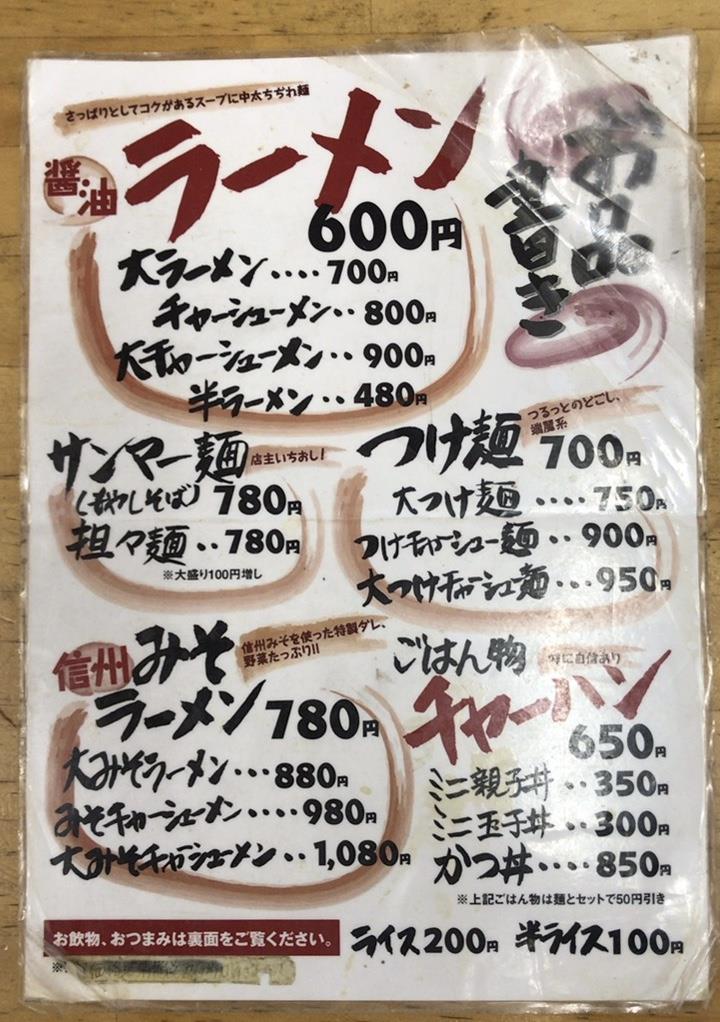 お品書き
さっぱりとしてコクがあるスープに中太ちぢれ麺
醤油
ラーメン
600円
大ラーメン‥‥700円
チャーシューメン‥800円
大チャーシューメン‥900円
半ラーメン‥480円
サンマー麺
店主いちおし!
(もやしそば) 780円
担々麺‥780円
※大盛り100円増し
つけ麺
つるっとのどごし、
端麗系
700円
大つけ麺‥‥750円
つけチャーシュー麺‥900円
大つけチャーシュー麺…950円
信州みそ
信州みそを使った特製ダレ、
野菜たっぷり!!
ラーメン780円
大みそラーメン…880円
みそチャーシューメン‥‥980円
大みそチャーシューメン‥1,080円
ごはん物
特に自信あり
チャーハン
650円
ミニ親子丼‥350円
ミニ玉子丼‥300円
かつ丼‥‥850円
※上記ごはん物は麺とセットで50円引き
お飲物、おつまみは裏面をご覧ください。
ライス200円 半ライス100円
※